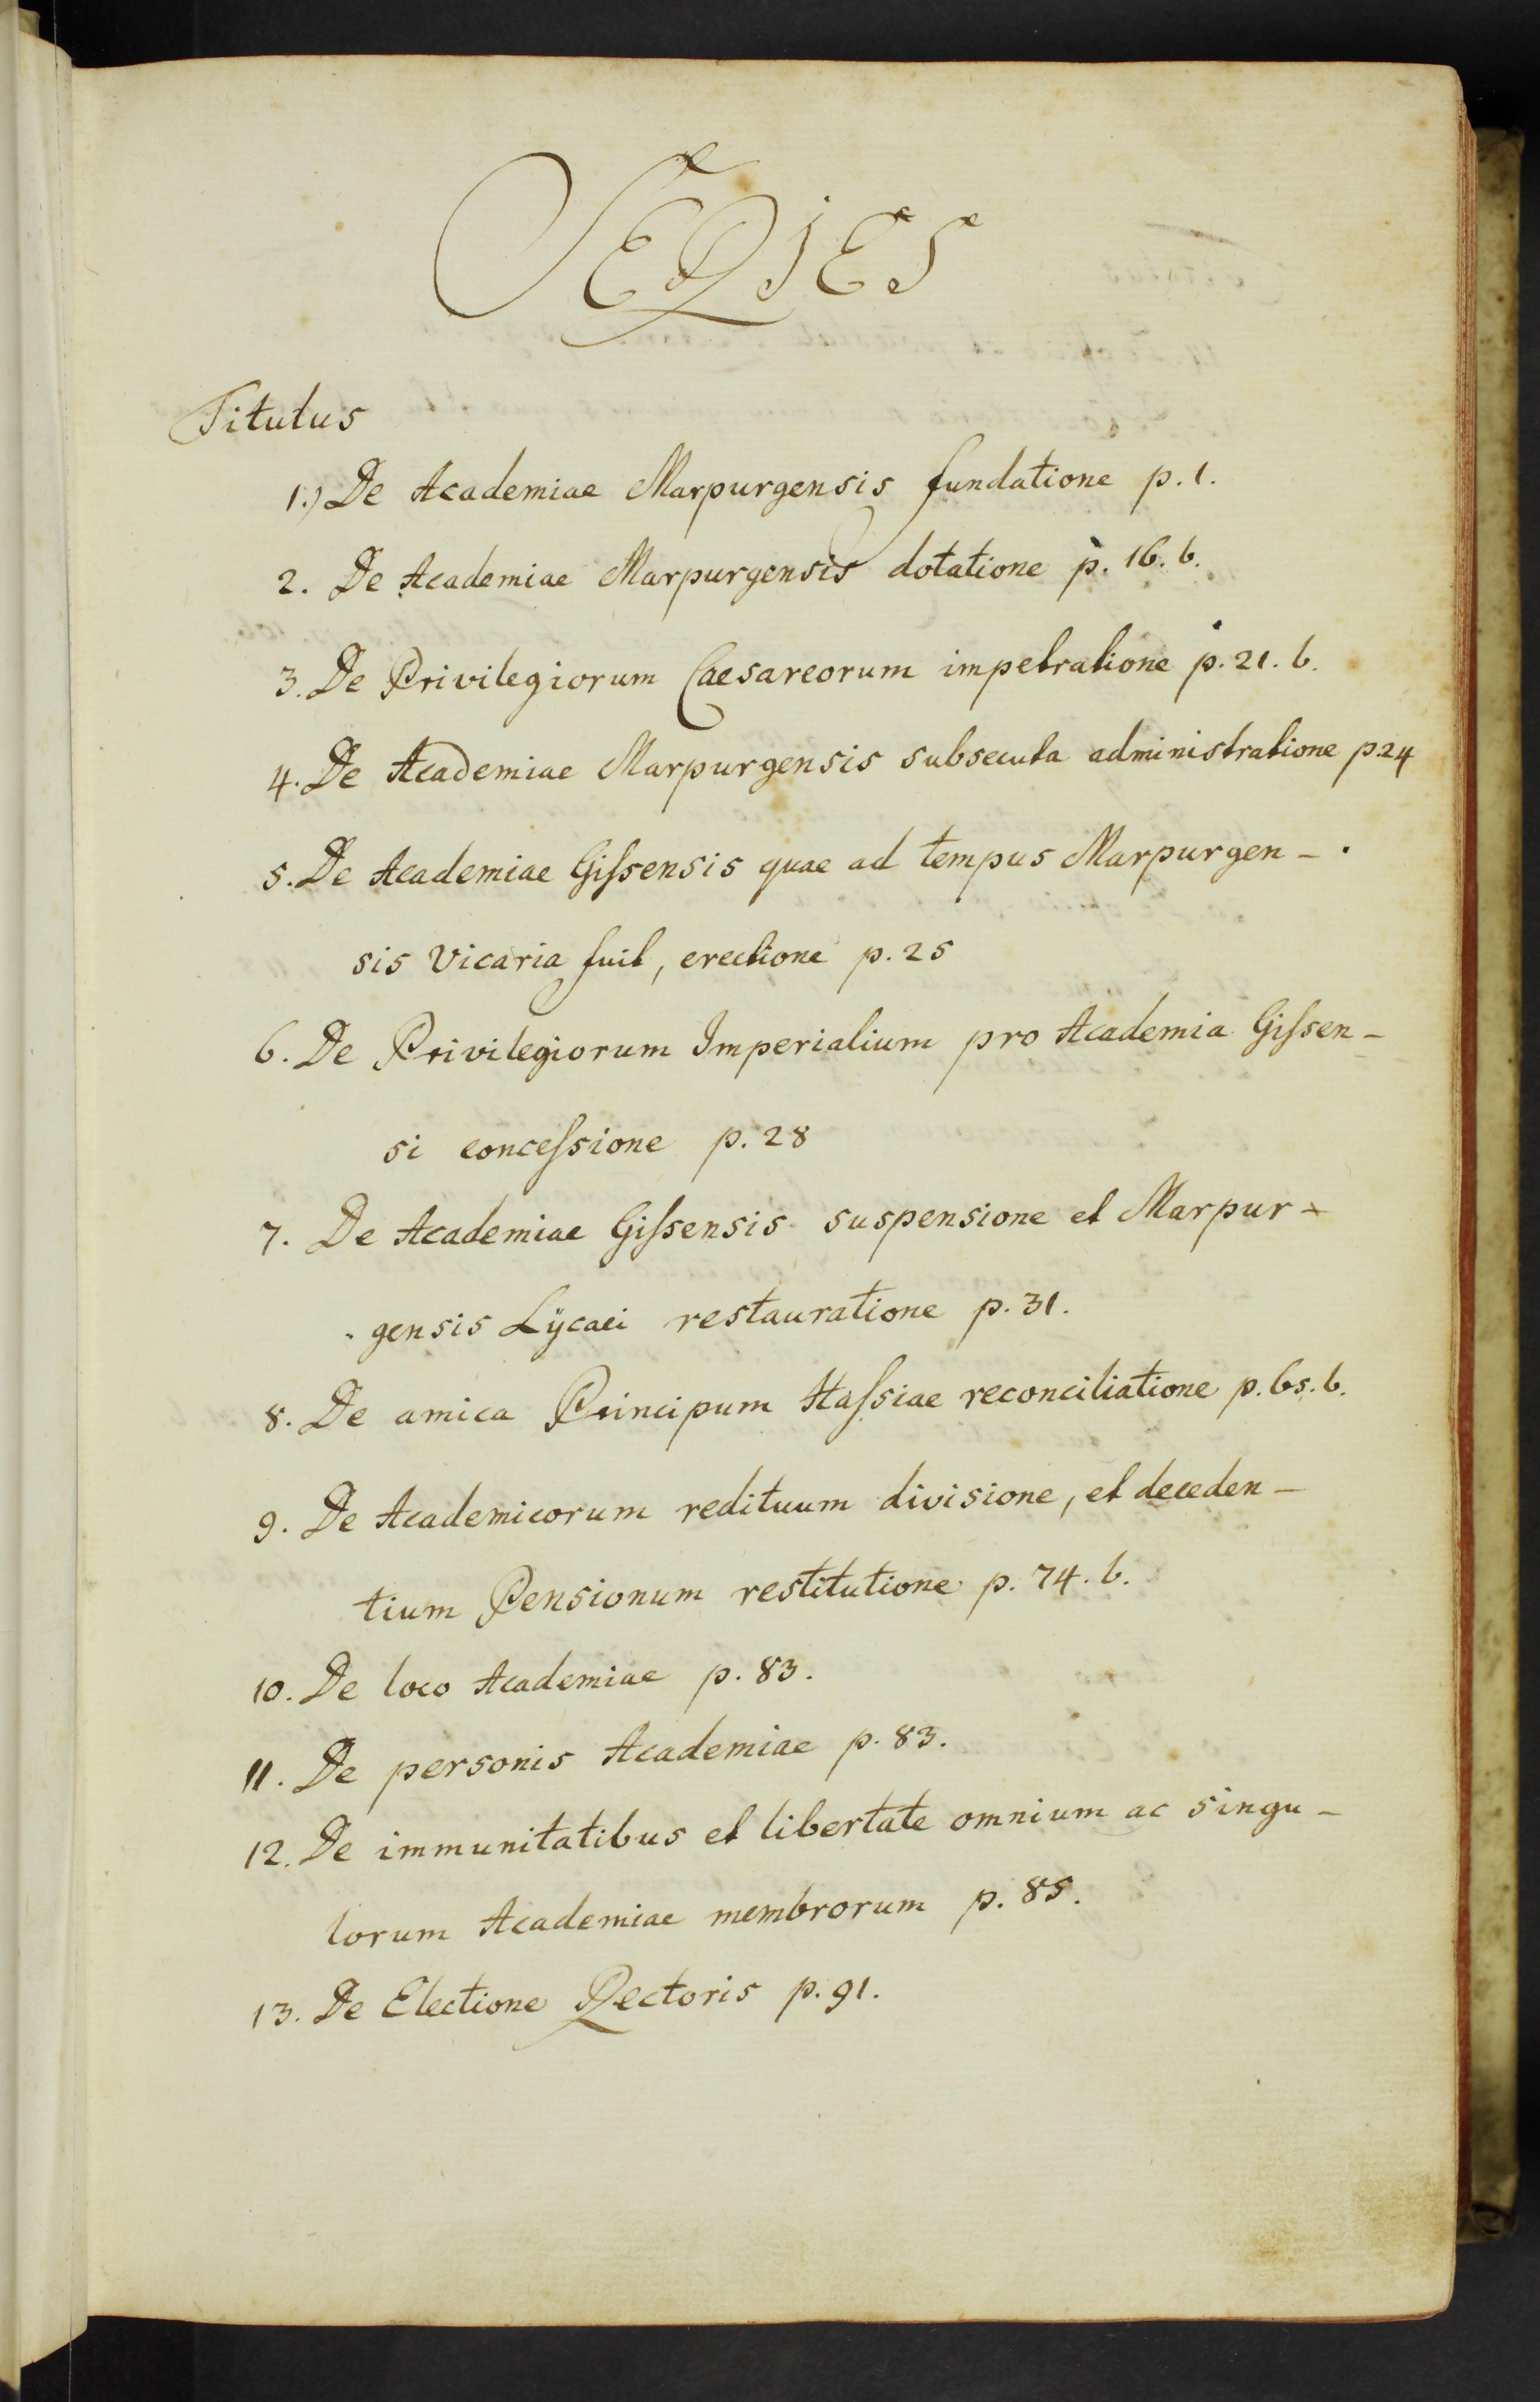 SERIES
Titulus
1.) De Academiae Marpurgensis fundatione p. 1.
2. De Academiae Marpurgensis dotatione p. 16. b.
3. De Privilegiorum Caesareorum impetratione p. 21. b.
4. De Academiae Marpurgensis subsecuta administratione p. 24
5. De Academiae Giſsensis quae ad tempus Marpurgen-
sis Vicaria fuit, erectione p. 25
6. De Privilegiorum Imperialium pro Academia Giſsen-
si conceſsione p. 28
7. De Academiae Giſsensis suspensione et Marpur-
gensis Lÿcaei restauratione p. 31.
8. De amica Principum Haſsiae reconciliatione p. 65. b.
9. De Academicorum redituum divisione, et deceden-
tium Pensionum restitutione p. 74. b.
10. De loco Academiae p. 83.
11. De personis Academiae p. 83.
12. De immunitatibus et libertate omnium ac singu-
lorum Academiae membrorum p. 85.
13. De Electione Rectoris p. 91.